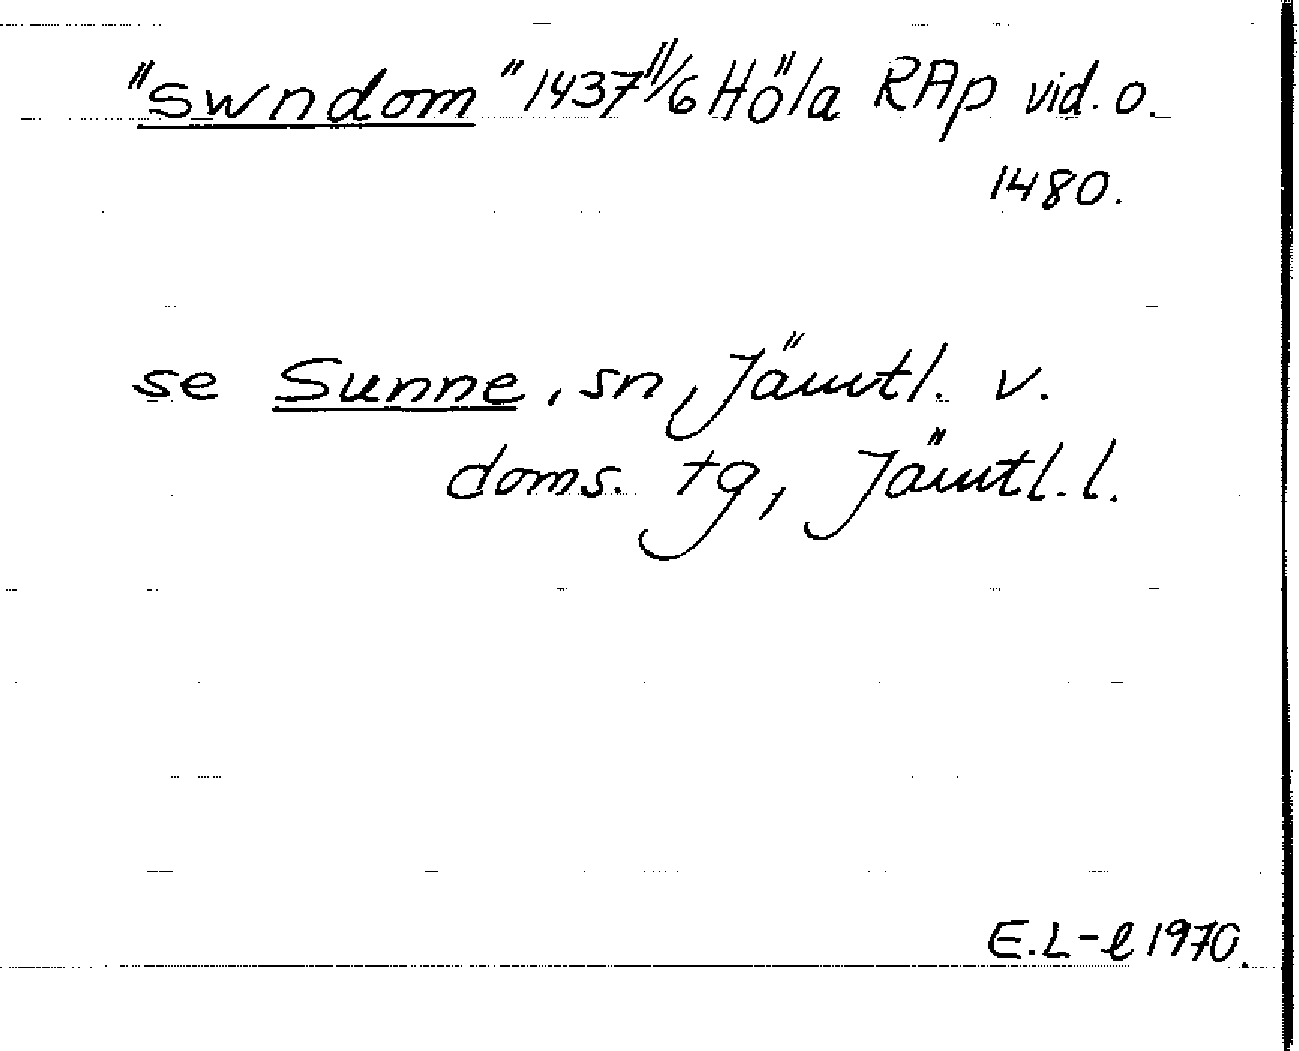 "swndom" 1437 11/6 Höla RAp vid. o.
1480.
se Sunne, sn, Jämtl. v.
doms. tg, Jämtl. l.
E.L-l 1970.